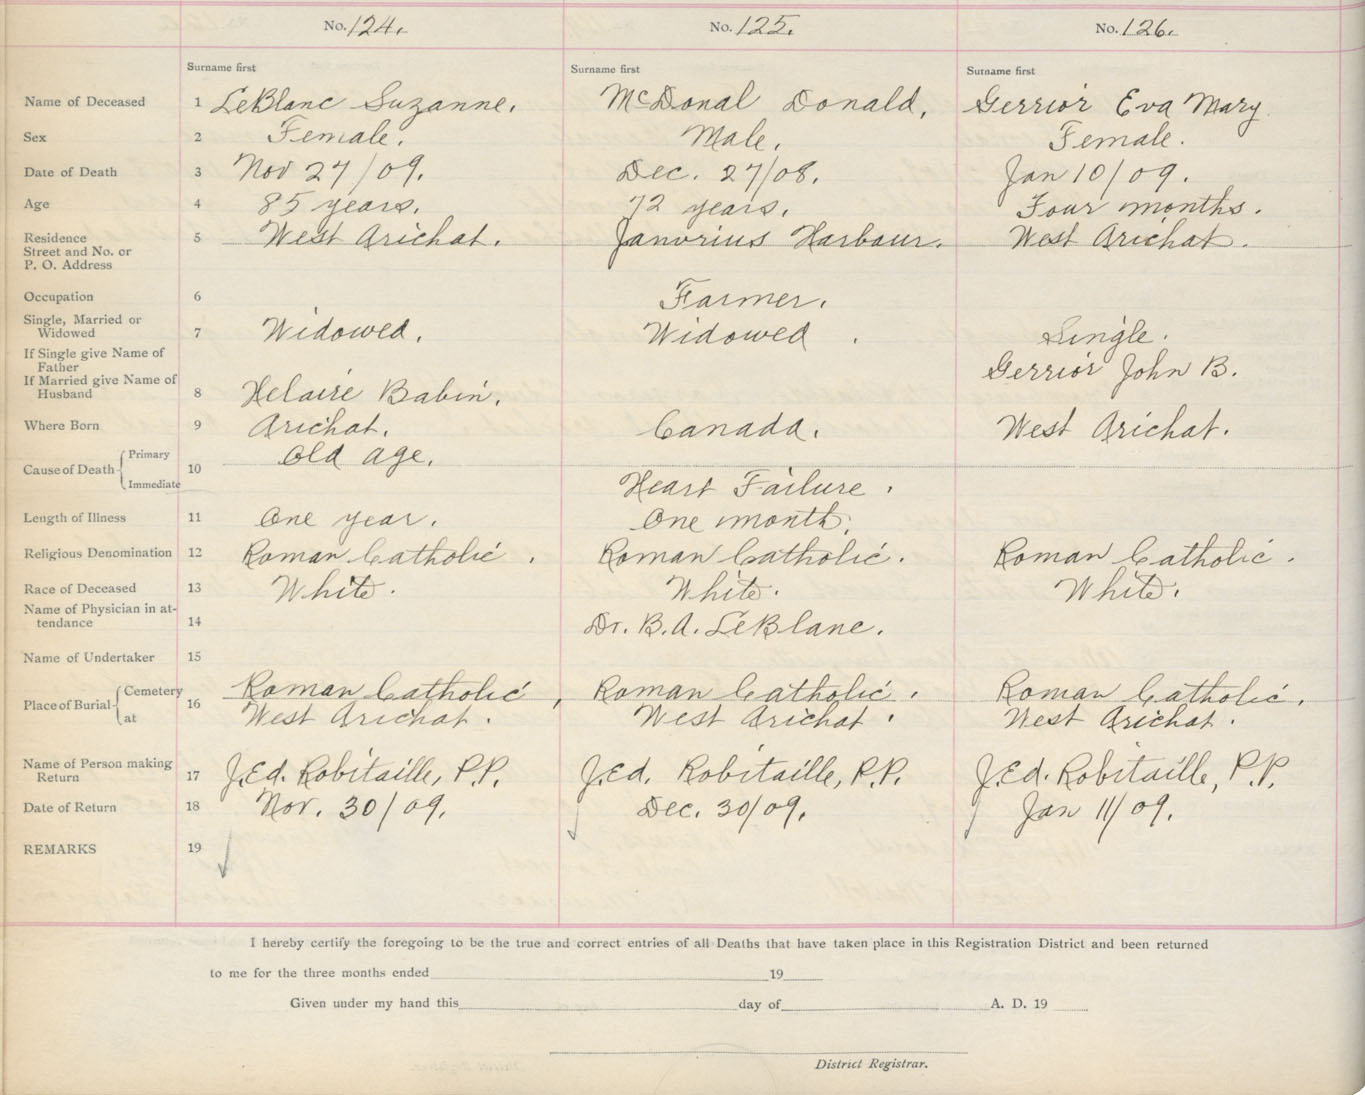 No. 124. No. 125. No. 126.
Surname first Surname first Surname first
Name of Deceased 1 LeBlanc Suzanne. McDonal Donald. Gerrior Eva Mary
Sex 2 Female. Male. Female.
Date of Death 3 Nov 27/09. Dec. 27/08. Jan 10/09.
Age 4 85 years. 72 years. Four months.
Residence 5 West Arichat. Janvrius Harbour. West Arichat.
Street and No. or
P. O. Address
Occupation 6 Farmer.
Single, Married or
Widowed 7 Widowed. Widowed. Single.
If Single give Name of
Father Gerrior John B.
If Married give Name of
Husband 8 Helaire Babin.
Where Born 9 Arichat. Canada. West Arichat.
Cause of Death Primary 10 Old Age.
Immediate Heart Failure.
Length of Illness 11 One year. One month.
Religious Denomination 12 Roman Catholic. Roman Catholic. Roman Catholic.
Race of Deceased 13 White. White. White.
Name of Physician in at-
tendance 14 Dr. B. A. LeBlanc.
Name of Undertaker 15
Place of Burial Cemetery 16 Roman Catholic, Roman Catholic. Roman Catholic.
at West Arichat. West Arichat. West Arichat.
Name of Person making
Return 17 J. Ed. Robitaille, P.P. J. Ed. Robitaille, P.P. J. Ed. Robitaille, P.P.
Date of Return 18 Nov. 30/09. Dec. 30/09. Jan 11/09.
REMARKS 19
I hereby certify the foregoing to be the true and correct entries of all Deaths that have taken place in this Registration District and been returned
to me for the three months ended 19
Given under my hand this day of A. D. 19
District Registrar.